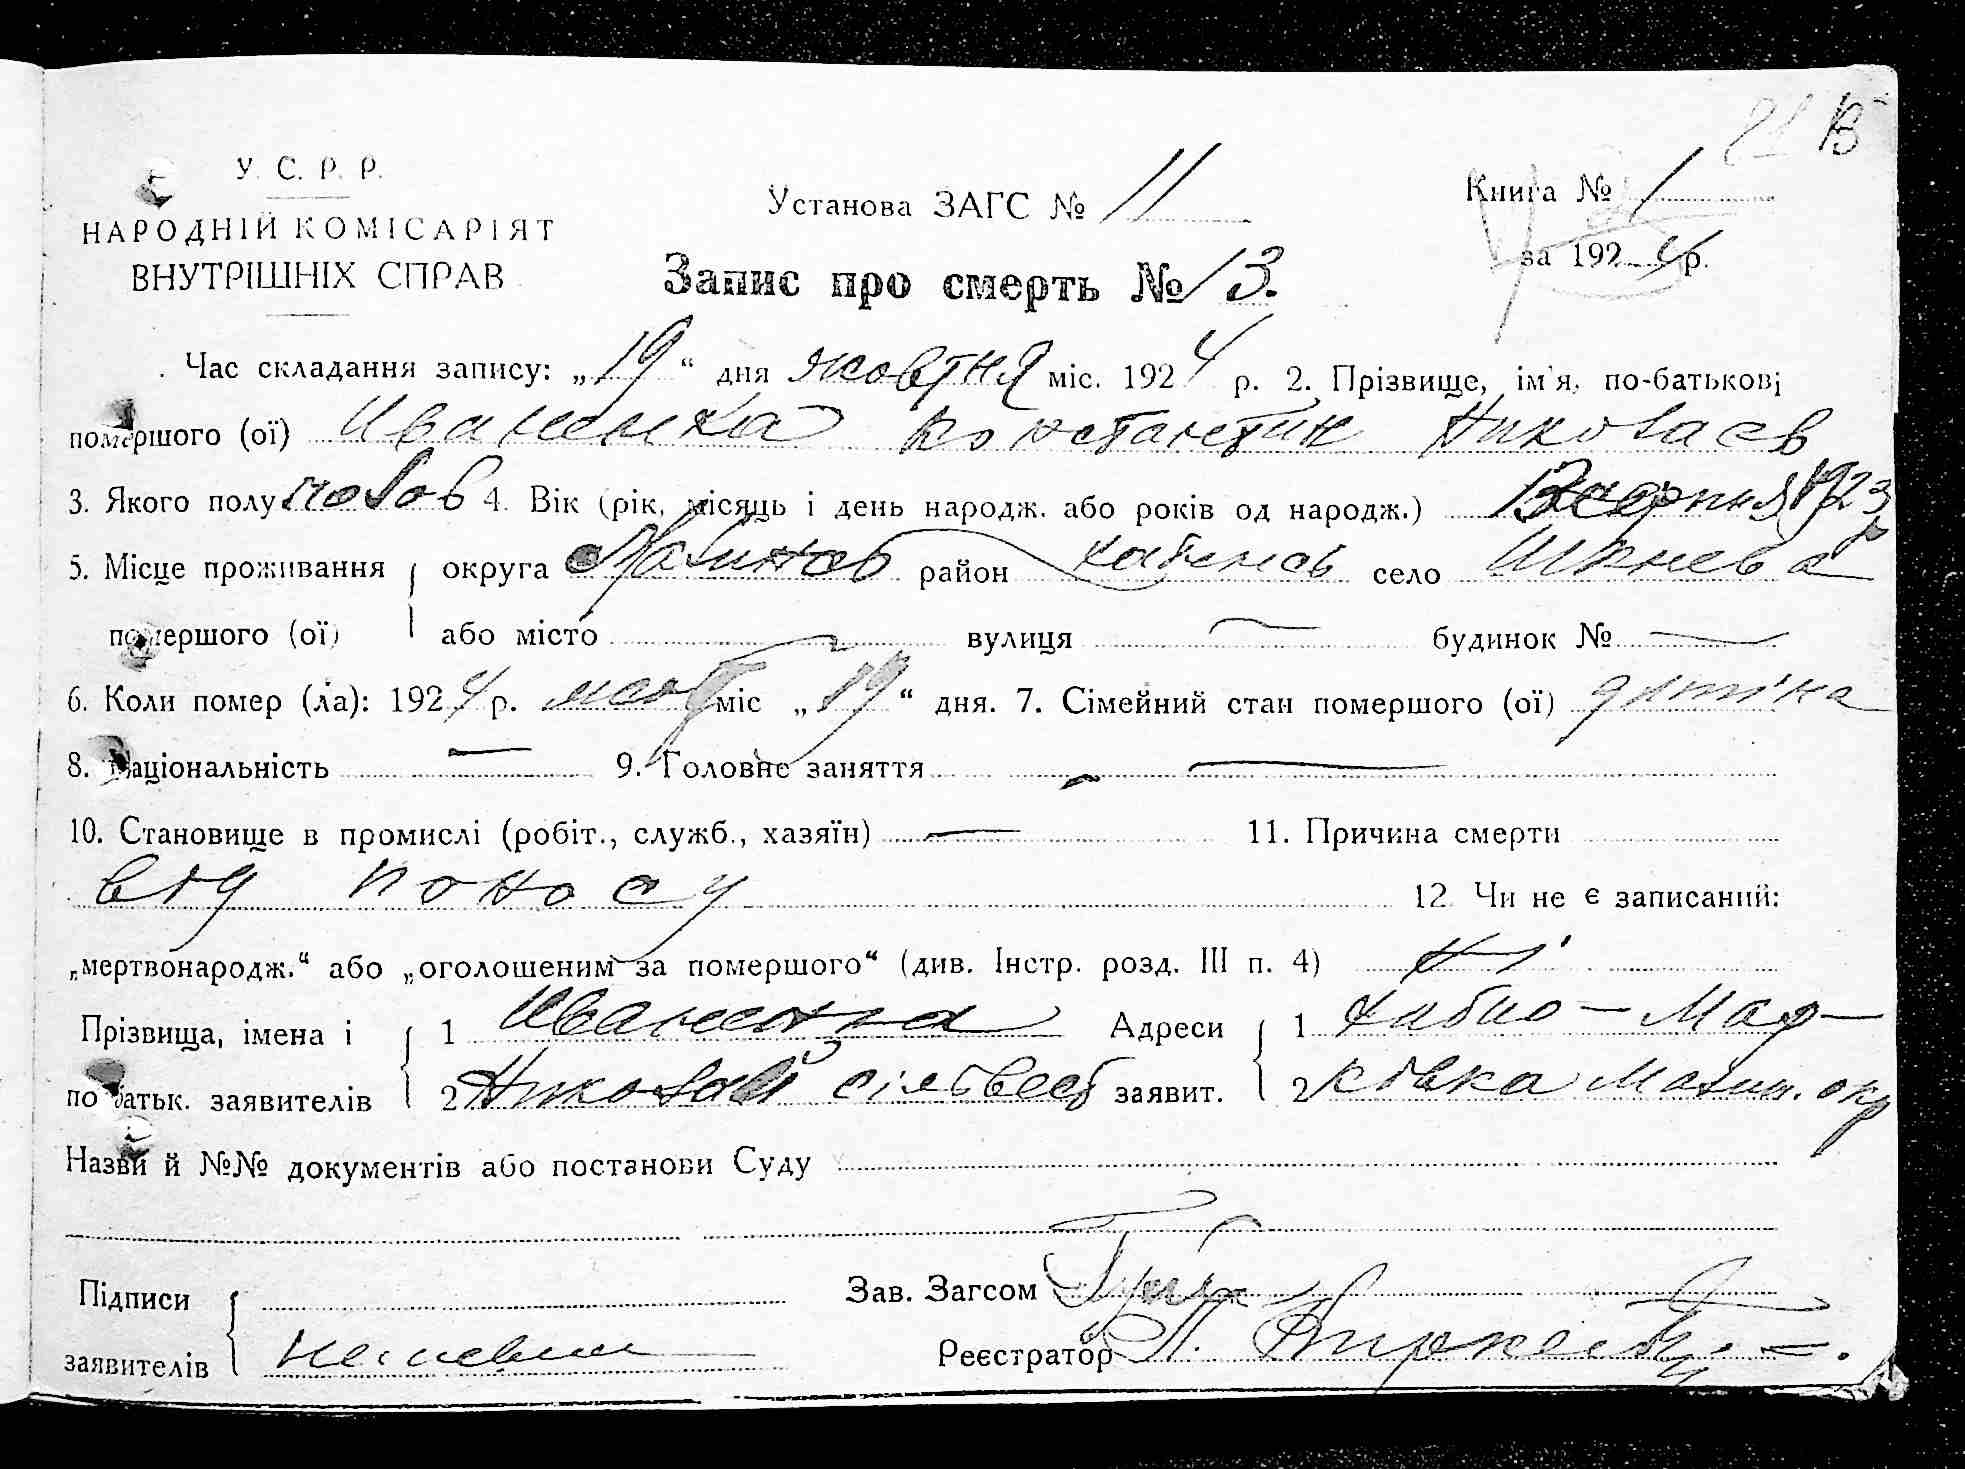 У. С. Р. Р.
НАРОДНІЙ КОМІСАРІЯТ
ВНУТРІШНІХ СПРАВ
Установа ЗАГС № 11
Книга № 1
за 1924 р.
Запис про смерть № 13.
Час складання запису: „19“ дня жовтня міс. 1924 р. 2. Прізвище, ім'я, по-батькові
помершого (ої) Иваненка Константин Николаєв
3. Якого полу 4. Вік (рік, місяць і день народж. або років од народж.) 1923
5. Місце проживання округа район село
помершого (ої) або місто вулиця будинок №
6. Коли помер (ла): 1924 р. жовт міс „19“ дня. 7. Сімейний стан помершого (ої) дитина
8. Національність — 9. Головне заняття —
10. Становище в промислі (робіт., служб., хазяїн) — 11. Причина смерти
від поносу 12. Чи не є записаний:
„мертвонародж.“ або „оголошеним за помершого“ (див. Інстр. розд. III п. 4) ні
Прізвища, імена і 1 Иваненка Адреси 1
по батьк. заявителів 2 Николай сільвест заявит. 2 окр
Назви й №№ документів або постанови Суду
Підписи
заявителів
Зав. Загсом
Реєстратор П.